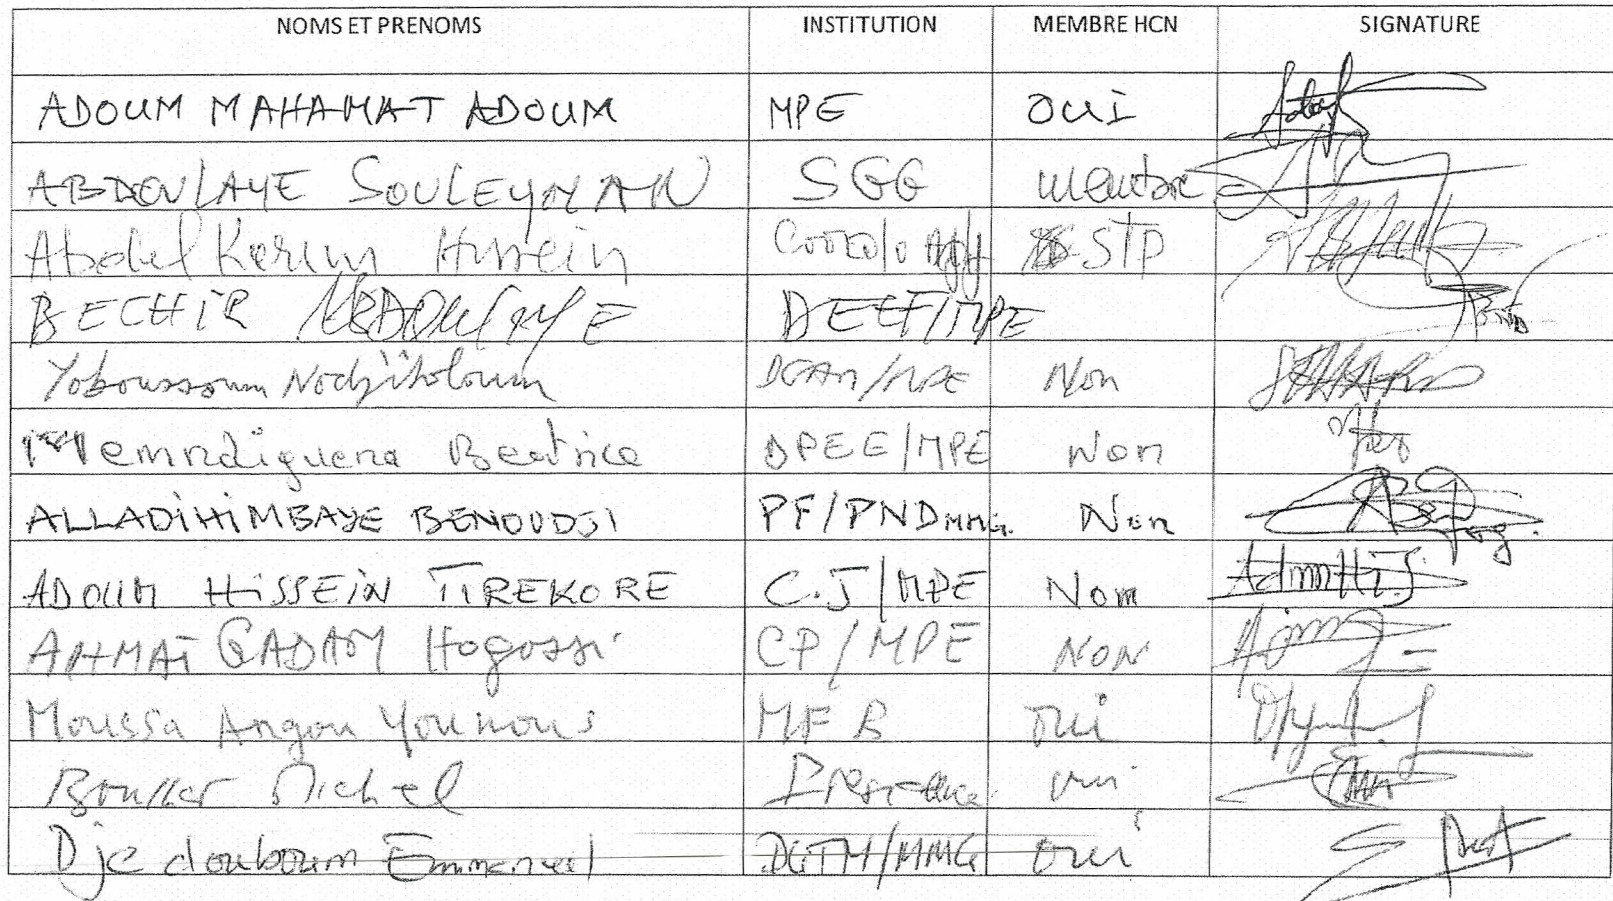 NOMS ET PRENOMS INSTITUTION MEMBRE HCN SIGNATURE
ADOUM MAHAMAT ADOUM MPE OUI
ABDOULAYE SOULEYMAN SGG membre
Abdel Karim Hissein Coordo Adjt STP
BECHIR ABDOULAYE DEEF/MPE
Yoboussoum Nodjitoloum /MPE Non
Memndiguena Beatrice DPEE/MPE Non
ALLADIHIMBAYE BENOUDJI PF/PNDMMG. Non
ADOUM HISSEIN TIREKORE C.J/MPE Nom
AHMAT GADAM Hogossi CP/MPE NON
Moussa Angou Younous MFB oui
Michel oui
Djedouboum Emmanuel DGTM/MMG oui